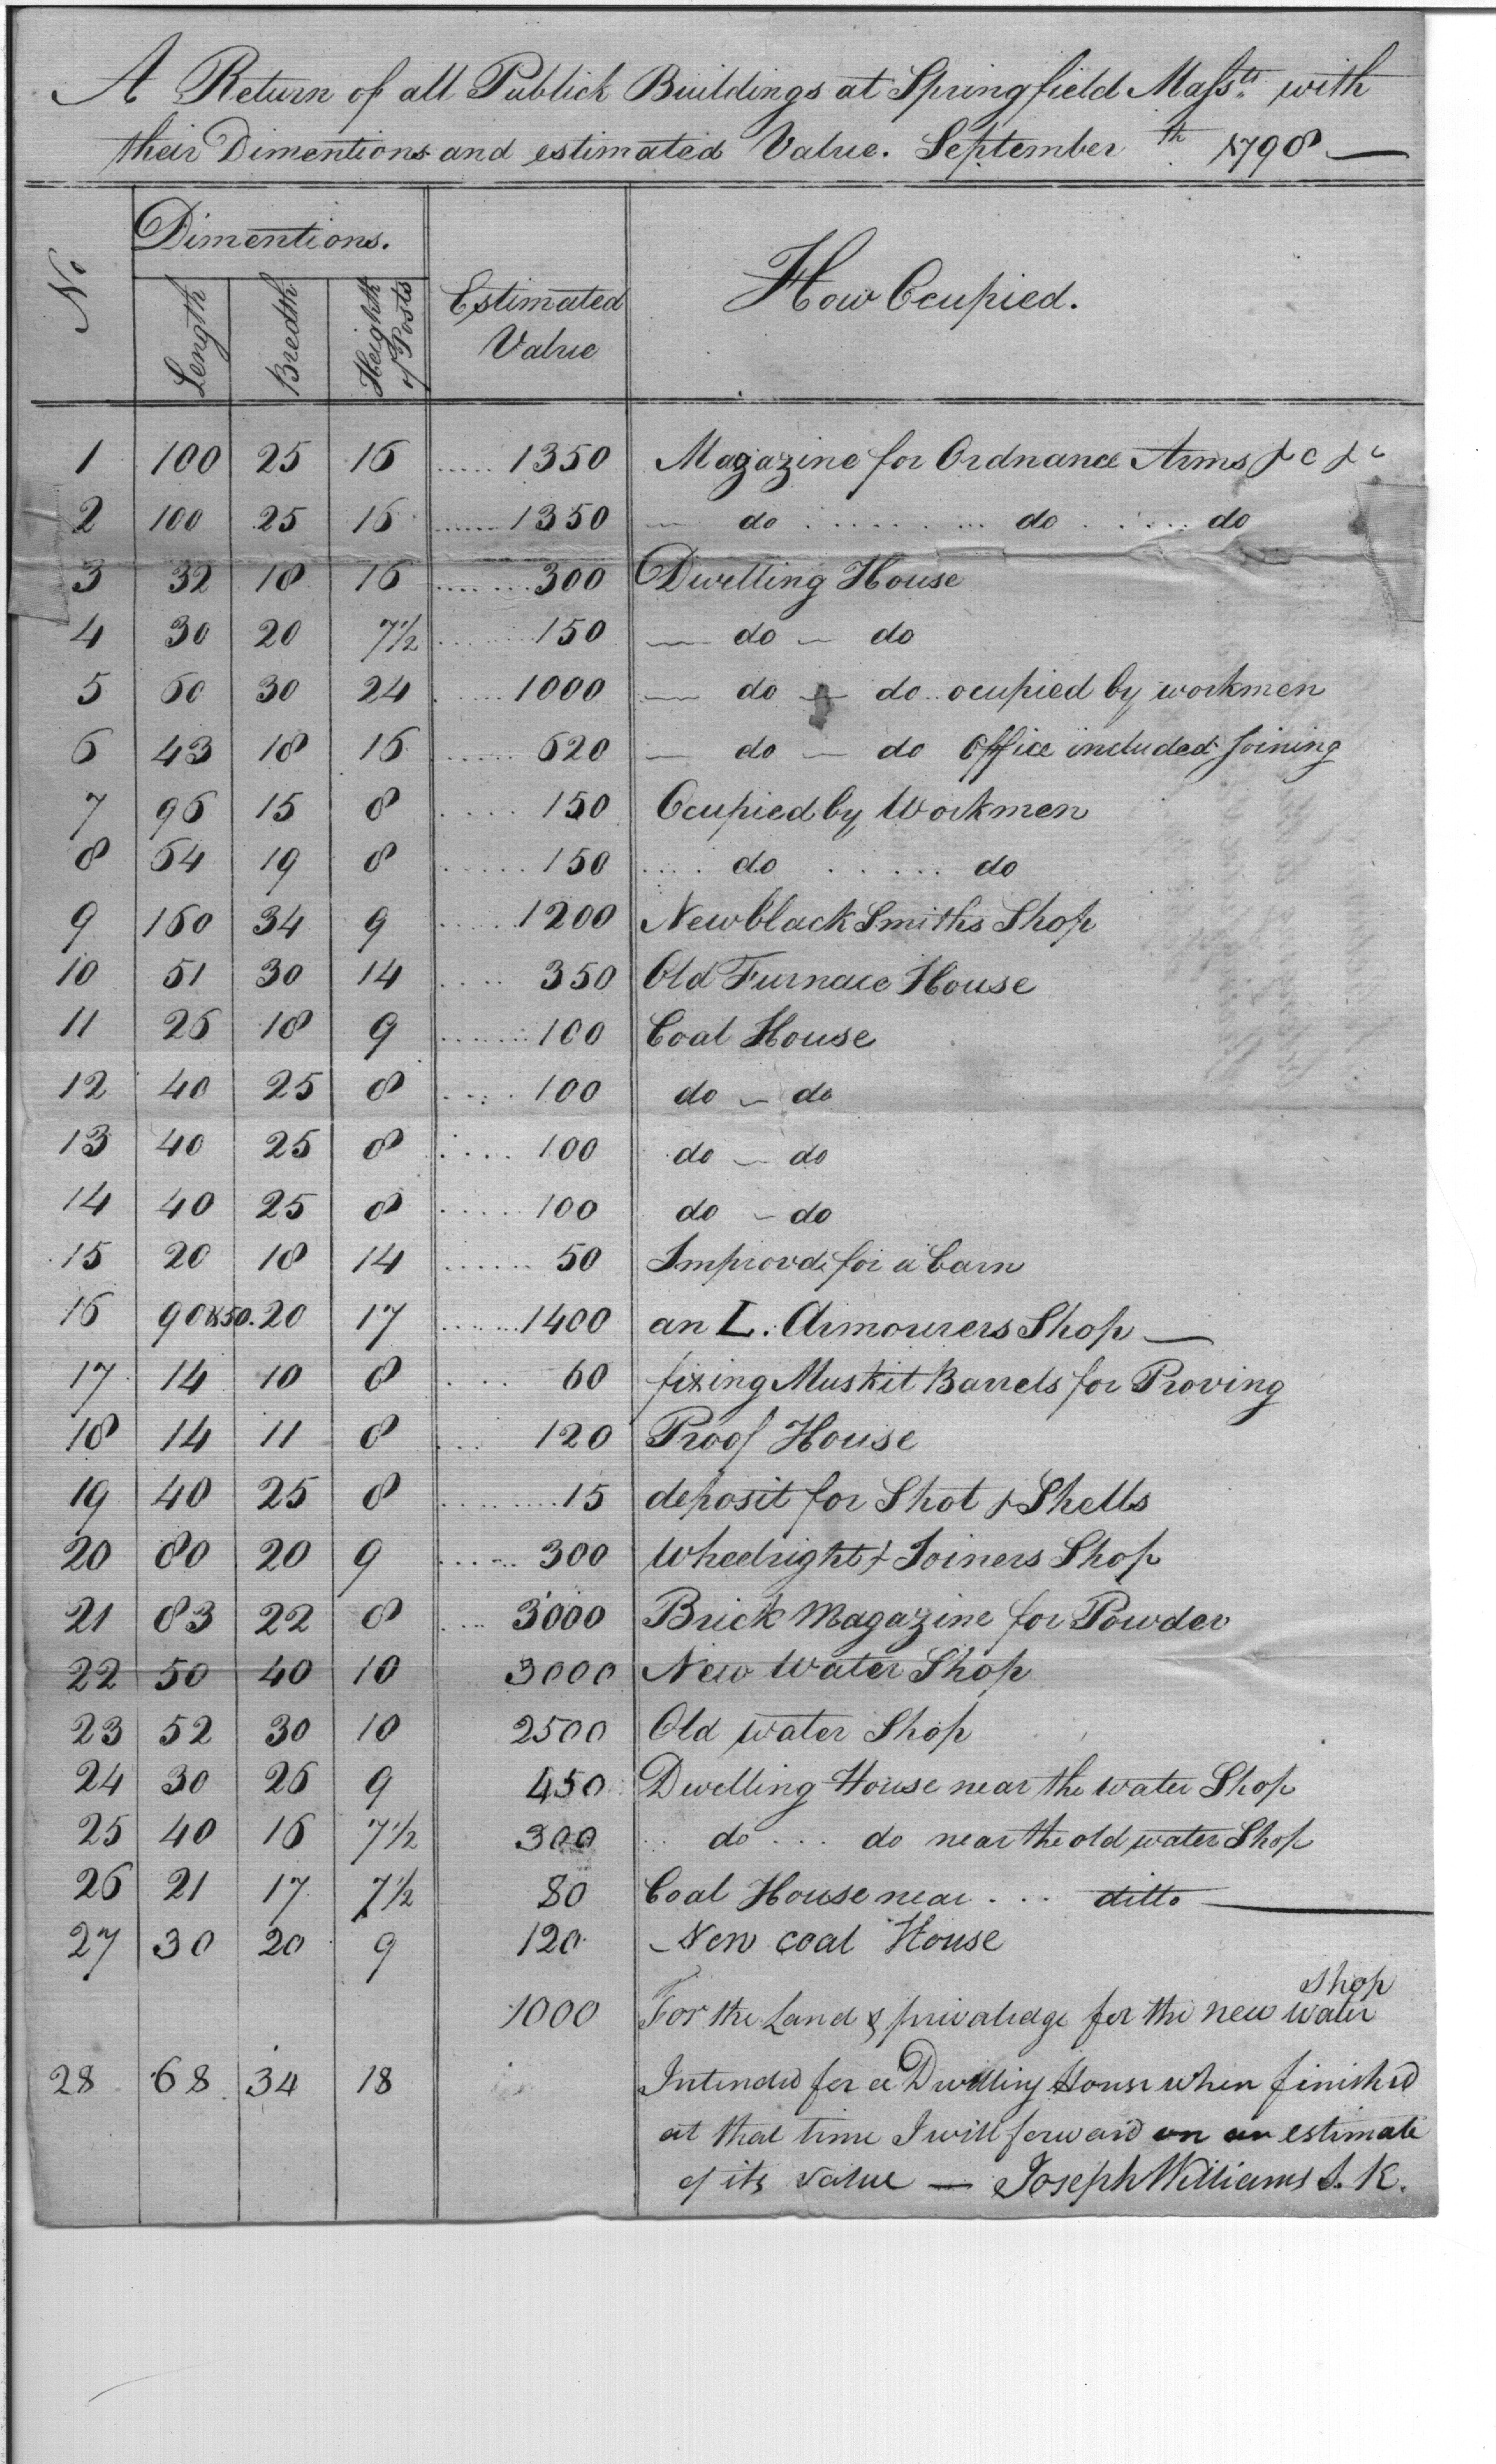 A Return of all Publick Buildings at Springfield Massts. with
their Dimentions and estimated Value. September th 1798 —
No. Dimentions. Estimated Value How Ocupied.
Length Bredth Heighth of Posts
1 100 25 16 ..... 1350 Magazine for Ordnance Arms &c &c
2 100 25 16 ...... 1350 — do ......... do ..... do
3 32 18 16 ....... 300 Dwelling House
4 30 20 7½ ....... 150 — do — do
5 60 30 24 ..... 1000 — do — do .. ocupied by workmen
6 43 18 16 ...... 620 — do — do Office included Joining
7 96 15 8 .... 150 Ocupied by Workmen
8 64 19 8 ...... 150 .... do ...... do
9 160 34 9 ..... 1200 New black Smiths Shop
10 51 30 14 .... 350 Old Furnace House
11 26 18 9 ....... 100 Coal House
12 40 25 8 .... 100 do — do
13 40 25 8 .... 100 do — do
14 40 25 8 ..... 100 do — do
15 20 18 14 ...... 50 Improvd. for a barn
16 90 & 50. 20 17 ...... 1400 an L. Armourers Shop —
17 14 10 8 ... 60 fixing Muskit Barrels for Proving
18 14 11 8 ... 120 Proof House
19 40 25 8 ........ 15 deposit for Shot & Shells
20 80 20 9 ..... 300 Wheelright & Joiners Shop
21 83 22 8 ... 3000 Brick Magazine for Powder
22 50 40 10 3000 New Water Shop
23 52 30 10 2500 Old water Shop
24 30 26 9 450 Dwelling House near the water Shop
25 40 16 7½ 300 .. do ... do near the old water Shop
26 21 17 7½ 80 Coal House near ... ditto —
27 30 20 9 120 New coal House
Shop
1000 For the Land & privaledge for the new water
28 68 34 18 Intended for a Dwelling House when finishd
at that time I will forward on an estimate
of its value — Joseph Williams S. K.